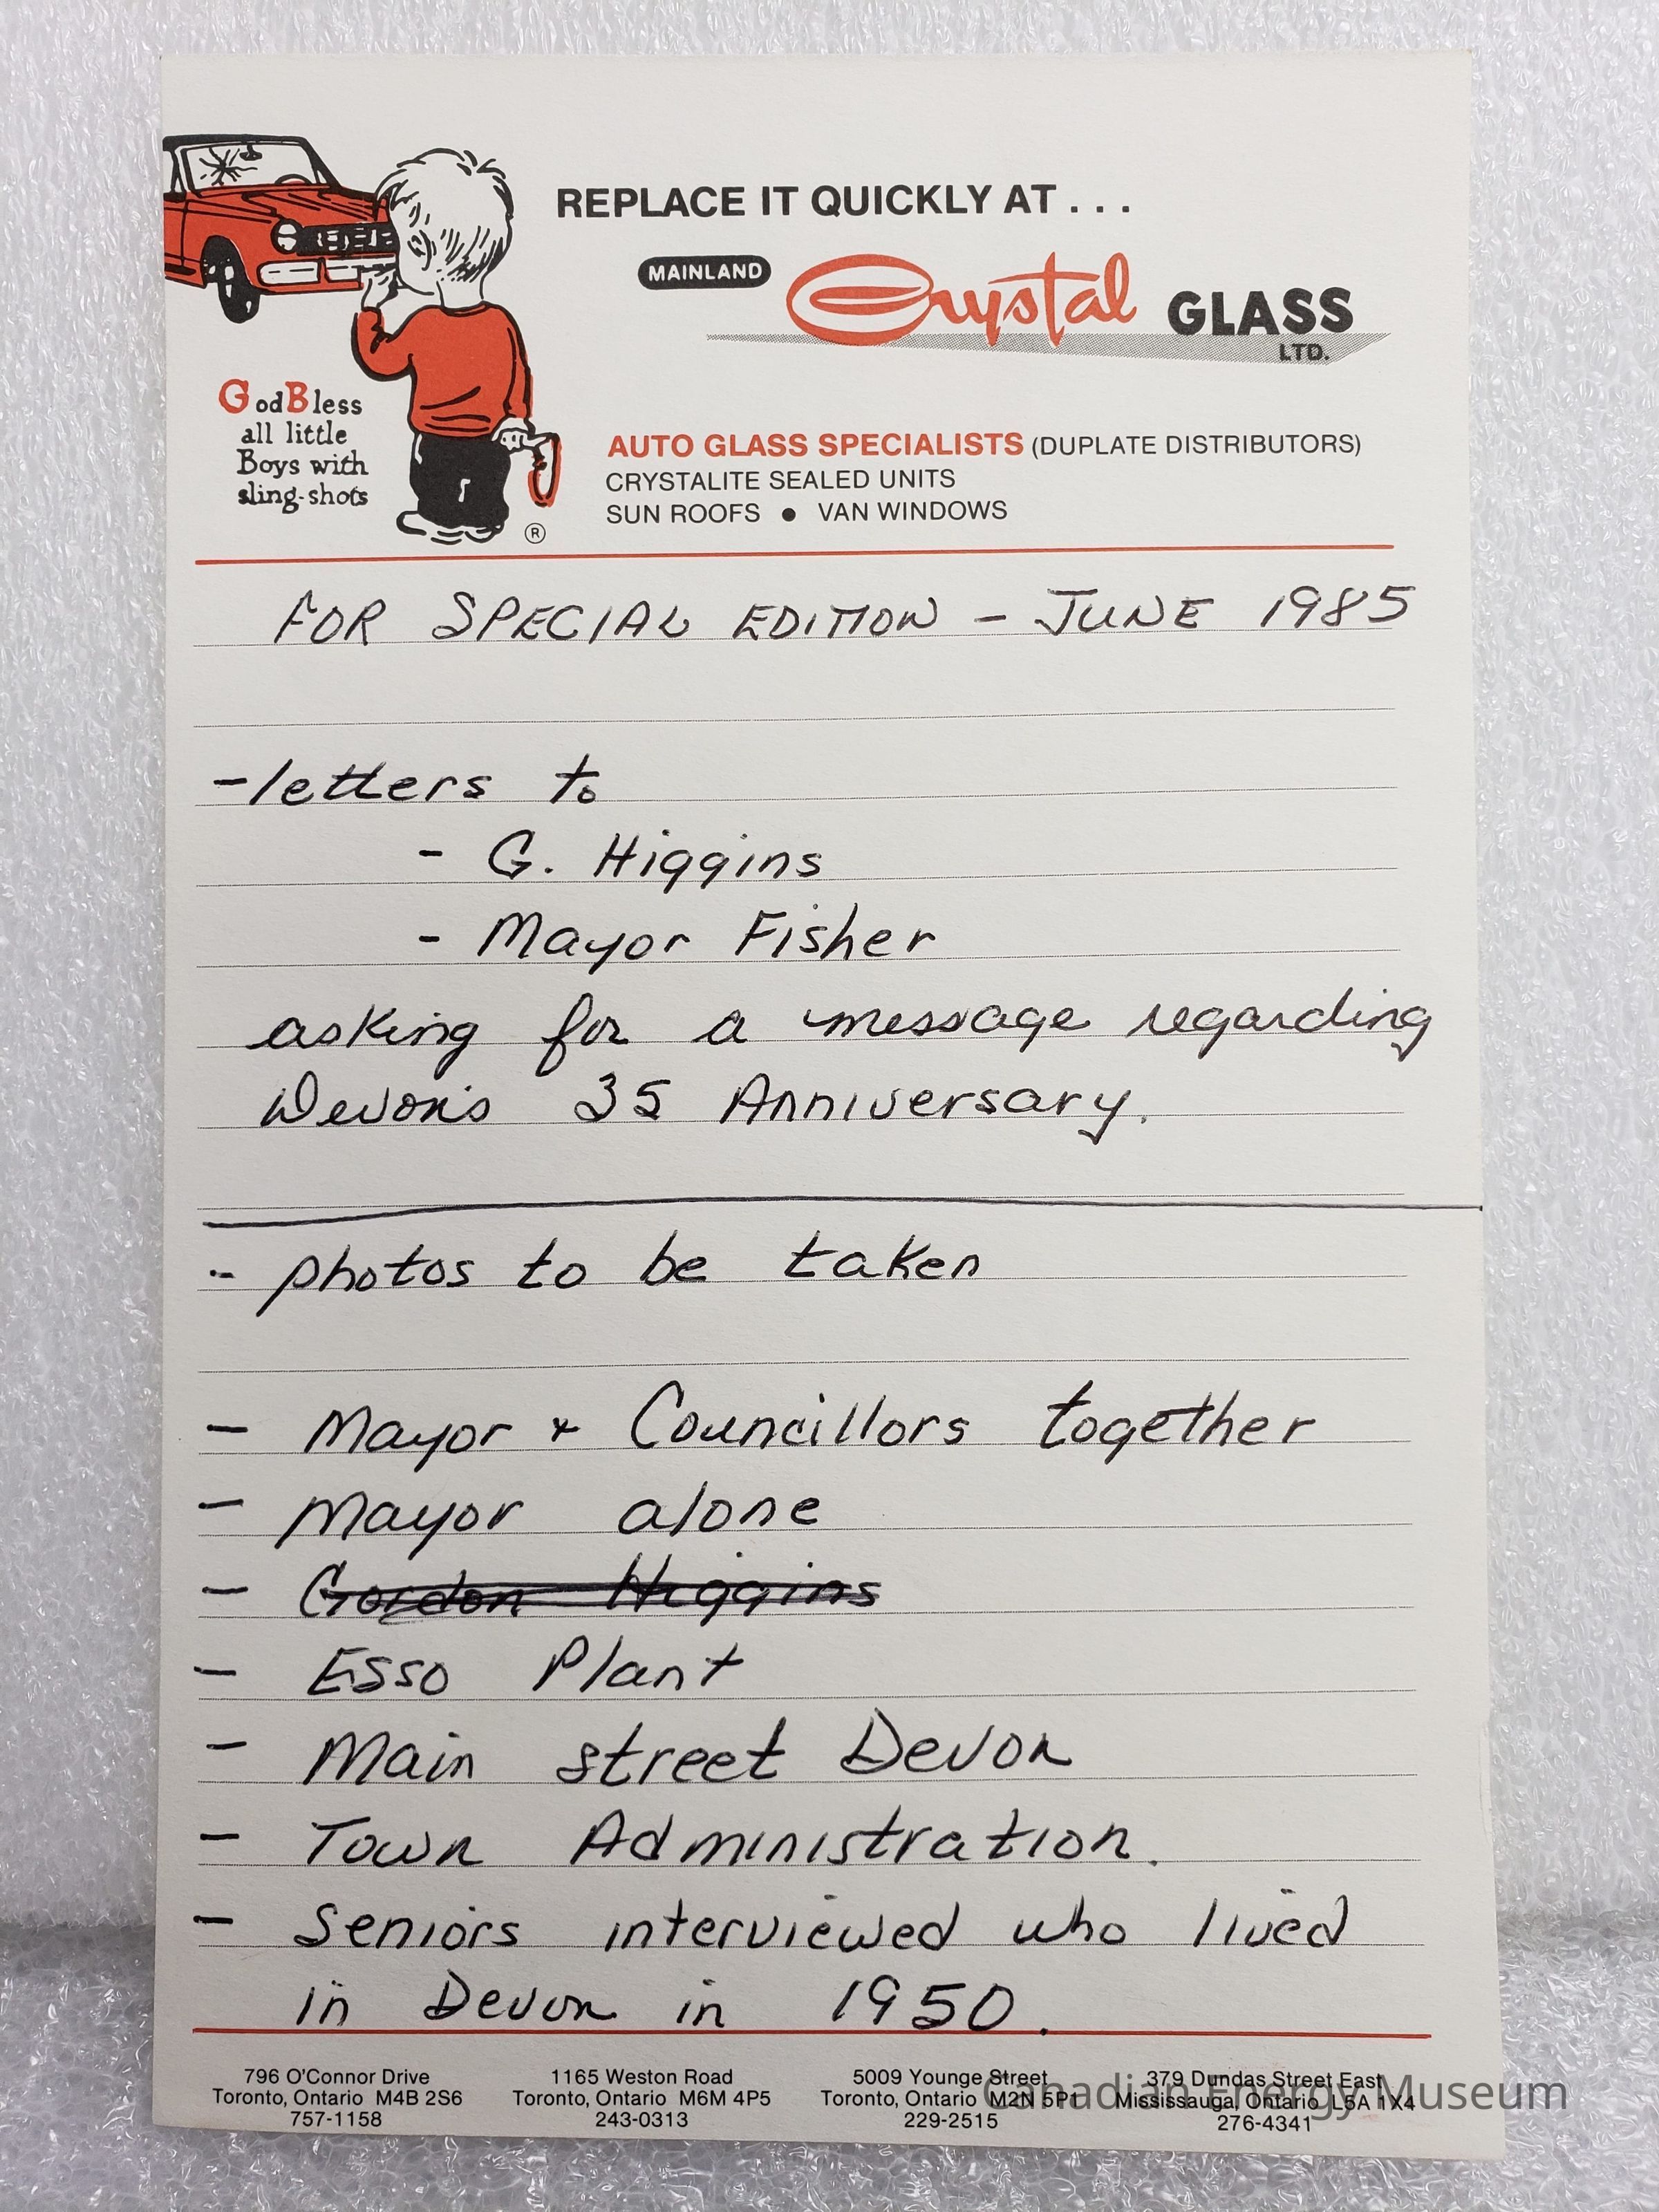 REPLACE IT QUICKLY AT . . .
MAINLAND Crystal GLASS
LTD.
God Bless
all little
Boys with
sling-shots
®
AUTO GLASS SPECIALISTS (DUPLATE DISTRIBUTORS)
CRYSTALITE SEALED UNITS
SUN ROOFS ● VAN WINDOWS
FOR SPECIAL EDITION - JUNE 1985
- letters to
- G. Higgins
- Mayor Fisher
asking for a message regarding
Devon's 35 Anniversary.
- photos to be taken
- Mayor + Councillors together
- Mayor alone
- Gordon Higgins
- Esso Plant
- Main street Devon
- Town Administration.
- Seniors interviewed who lived
in Devon in 1950.
796 O'Connor Drive
Toronto, Ontario M4B 2S6
757-1158
1165 Weston Road
Toronto, Ontario M6M 4P5
243-0313
5009 Younge Street
Toronto, Ontario M2N 5P1
229-2515
379 Dundas Street East
Mississauga, Ontario L5A 1X4
276-4341
Canadian Energy Museum